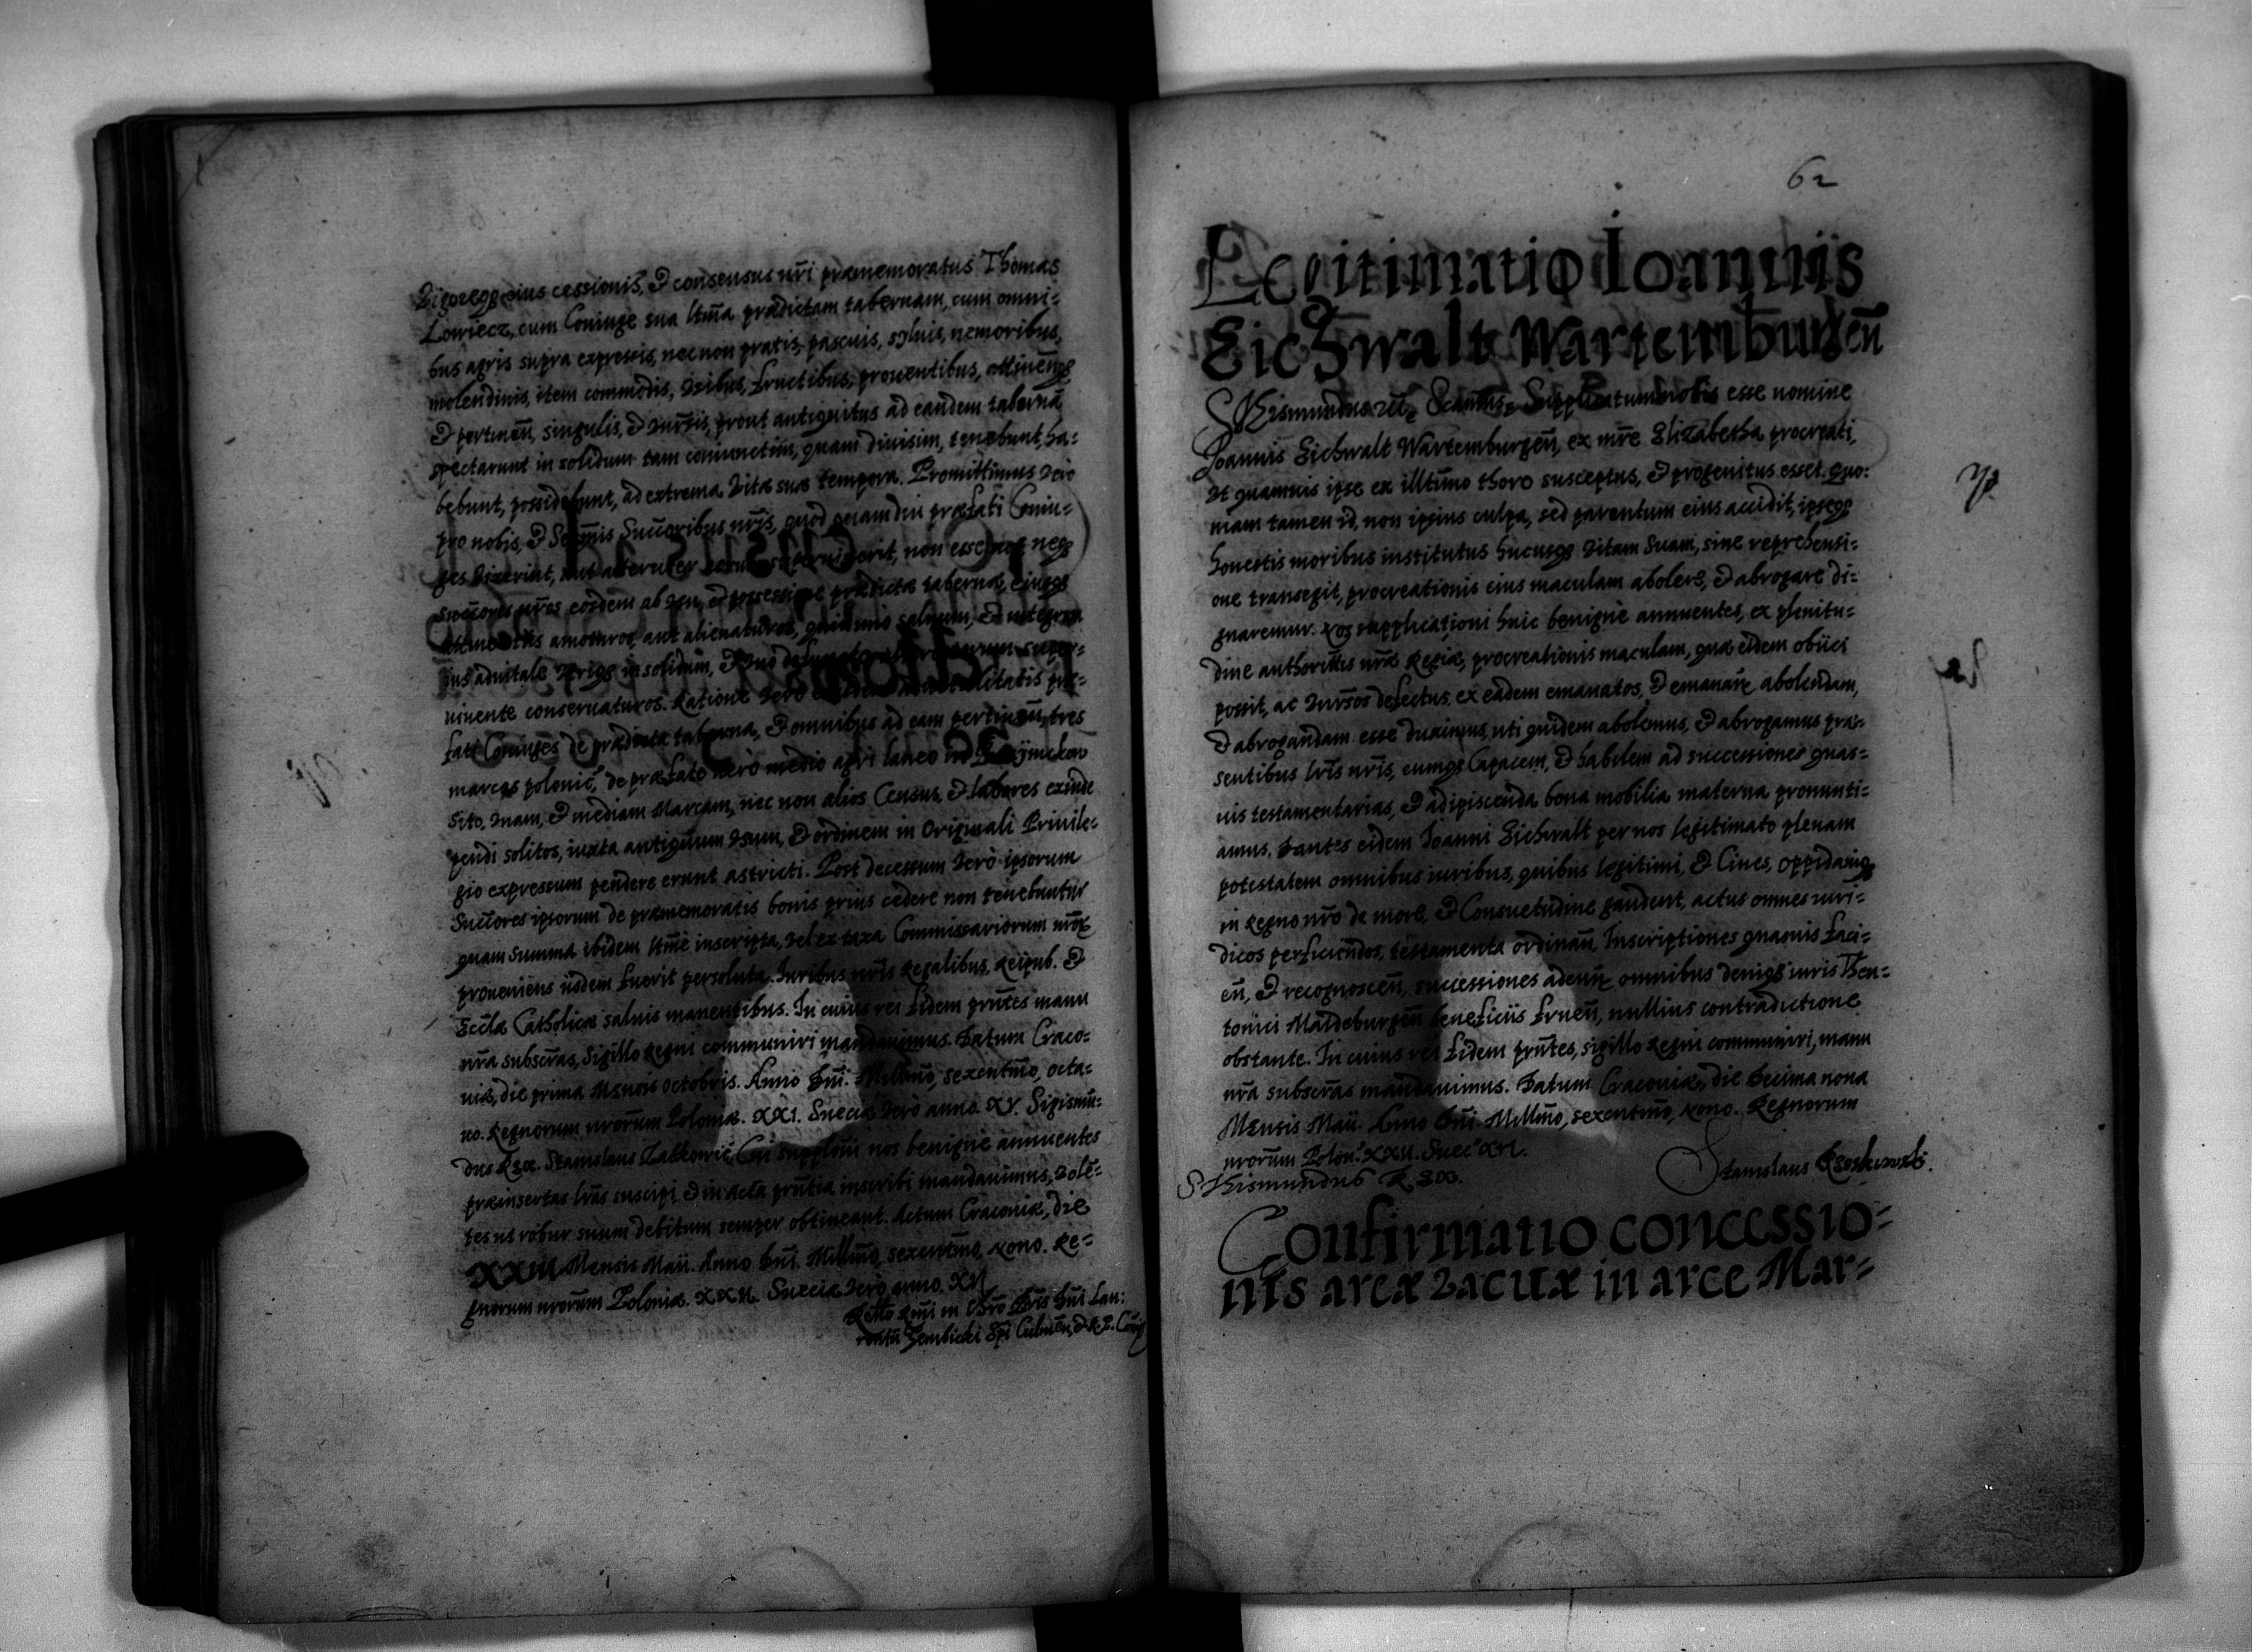 Vigoreqз eius cessionis, & consensus nr̃i præmemoratus Thomas
Lowiecz, cum Coniuge sua ltm̃a prædictam tabernam, cum omni-
bus agris supra expressis, necnon pratis, pascuis, syluis, nemoribus,
molendinis, item commodis, vsibus, fructibus, prouentibus, attinen̄qз
& pertinen̄, singulis, & vnr̃sis, prout antiquitus ad eandem tabernã
spectarunt in solidum tam coniunctim, quam diuisim, tenebunt, ha-
bebunt, possidebunt, ad extrema vitæ suæ tempora. Promittimus vero
pro nobis, & Serm̃is Succ̃oribus nr̃is, quod quamdiu præfati Coniu-
ges vixerint, aut alteruter superuixerit, non esse nos neqз
succ̃ores nr̃os eosdem ab vsu, & possessione prædictæ tabernæ, eiusqз
attinentiis amoturos, aut alienaturos, quin imo saluum, & integrum
ius aduitale vtriqз in solidum, & vno defuncto alteri eorum super-
uiuente conseruaturos. Ratione vero aduitalitatis præ-
fati Coniuges de prædicta taberna, & omnibus ad eam pertinen̄, tres
marcas polonic̃, de præfato vero medio agri laneo in
sito, vnam, & mediam Marcam, nec non alios Census, & labores exinde
pendi solitos, iuxta antiquum vsum, & ordinem in Originali Priuile-
gio expressum pendere erunt astricti. Post decessum vero ipsorum
Succ̃ores ipsorum de præmemoratis bonis prius cedere non tenebuntur
quam summa ibidem ltm̃e inscripta, vel ex taxa Commissariorum nr̃oꝝ
proueniens iisdem fuerit persoluta. Iuribus nr̃is Regalibus, Reipub. &
Eccl̃æ Catholicæ saluis manentibus. In cuius rei fidem pn̄tes manu
nr̃a subscr̃as, Sigillo Regni communiri mandauimus. Datum Craco-
uiæ, die prima Mensis octobris. Anno Dn̄i. Millm̃o, sexentm̃o, octa-
uo. Regnorum nrõrum Poloniæ. XXI. Sueciæ vero anno. XV. Sigismũ-
dus Rex. Stanislaus Zabkowic̃ Cui supplõni nos benigne annuentes
præinsertas lr̃as suscipi & in acta pn̄tia inscribi mandauimus, volẽ-
tes ut robur suum debitum semper obtineant. Actum Cracouiæ, die
XXIII Mensis Maii. Anno Dn̄i. Millm̃o, sexentm̃o, Nono. Re-
gnorum nrõrum Poloniæ. XXII. Sueciæ vero anno. XVI
Gembicki Ep̃i Culmen̄, & R. P. Canc̃
62
Legitimatio Ioannis
Eichwalt Wartemburgen̄
Sigismundus Supplicatum nobis esse nomine
Joannis Eichwalt Wartemburgen̄, ex mr̃e Elizabetha procreati,
Vt quamuis ipse ex illtimo thoro susceptus, & progenitus esset. Quo-
niam tamen id, non ipsius culpa, sed parentum eius accidit, ipseqз
honestis moribus institutus hucusqз vitam suam, sine reprehensi-
one transegit, procreationis eius maculam abolere, & abrogare di-
gnaremur. Nos supplicationi huic benigne annuentes, ex plenitu-
dine authoritis nr̃æ Regiæ, procreationis maculam, quæ eidem obiici
possit, ac vnr̃sos defectus, ex eadem emanatos, & emanare abolendam,
& abrogandam esse duximus, uti quidem abolemus, & abrogamus præ-
sentibus lr̃is nr̃is, eumqз Capacem, & habilem ad successiones quas-
uis testamentarias, & adipiscenda bona mobilia materna pronunti-
amus. Dantes eidem Joanni Eichwalt per nos legitimato plenam
potestatem omnibus iuribus, quibus legitimi, & Ciues, oppidaniqз
in Regno nr̃o de more, & Consuetudine gaudent, actus omnes iuri-
dicos perficiendos, testamenta ordinan̄, Inscriptiones quasuis faci-
en̄, & recognoscen̄, successiones adeun̄ omnibus deniqз iuris Theu-
tonici Maideburgen̄ beneficiis fruen̄, nullius contradictione
obstante. In cuius rei fidem pn̄tes, sigillo Regni communiri, manu
nr̃a subscr̃as mandauimus. Datum Cracouiæ, die Decima nona
Mensis Maii. Anno Dn̄i. Millm̃o, sexentm̃o, Nono. Regnorum
nrõrum Polon̄. XXII. Suec̃ XVI.
Sigismundus Rex.
Stanislaus
Confirmatio concessio-
nis areæ vacuæ in arce Mar-